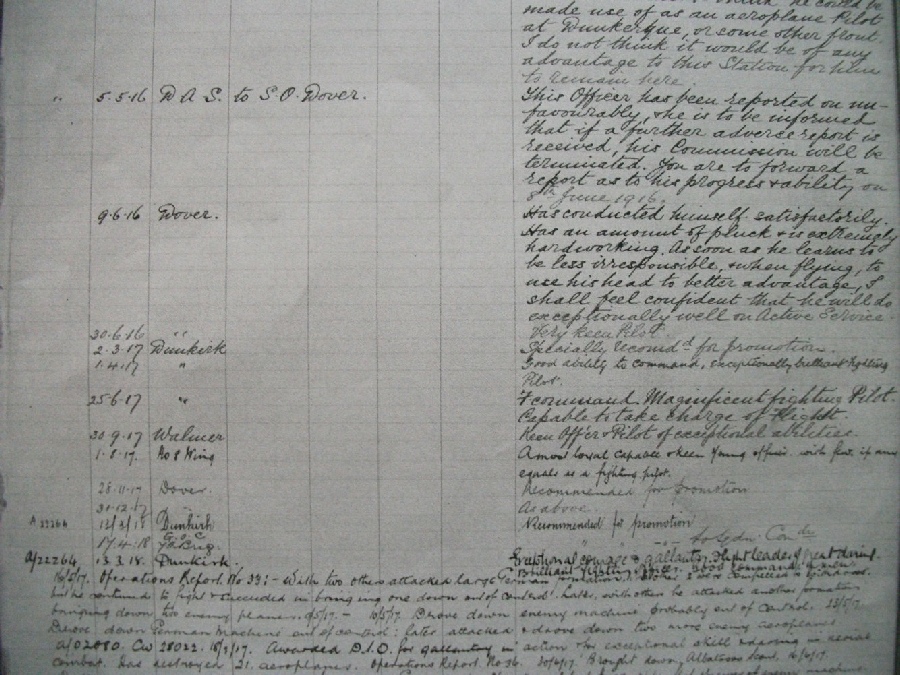 made use of as an aeroplane Pilot
at Dunkerque, or some other front.
I do not think it would be of any
advantage to this Station for him
to remain here.
" 5.5.16 D A S. to S.O. Dover. This Officer has been reported on un-
favourably, & he is to be informed
that if a further adverse report is
received, his Commission will be
terminated. You are to forward a
report as to his progress & ability on
8th June 1916.
9.6.16 Dover. Has conducted himself satisfactorily.
Has an amount of pluck & is extremely
hardworking. As soon as he learns to
be less irresponsible, & when flying, to
use his head to better advantage, I
shall feel confident that he will do
exceptionally well on Active Service.
30.6.16 " Very keen Pilot.
2.3.17 Dunkirk Specially recomd for promotion.
1.4.17 " Good ability to command, exceptionally brilliant fighting
Pilot.
25.6.17 " command. Magnificent fighting Pilot.
Capable to take charge of Flight.
30.9.17 Walmer Keen Offr & Pilot of exceptional abilities.
1.8.17. No 8 Wing A most loyal capable & keen young officer with few, if any
equals as a fighting pilot.
28.11.17 Dover. Recommended for promotion
31.12.17 As above
A 22264 12/3/18 Dunkirk Recommended for promotion
17.4.18
A/22264. 13.3.18. Dunkirk. Exceptional courage & gallantry. Flight leader of great daring.
Brilliant fighting
Operations Report. No 33:- With two others attacked large German
but he continued to fight & succeeded in bringing one down out of control. Later, with others he attacked another formation
bringing down two enemy planes. Drove down enemy machine probably out of control.
Drove down German Machine out of control: later attacked & drove down two more enemy aeroplanes
A/02080. CW 28022. Awarded D.S.O. for gallantry in action & for exceptional skill & daring in aerial
combat. Has destroyed 21 aeroplanes. Operations Report. No 36. Brought down Albatross Scout.